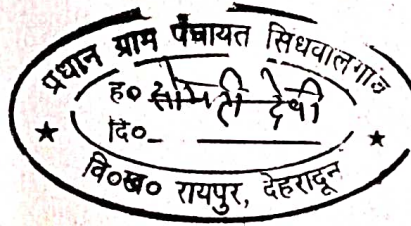 प्रधान ग्राम पंचायत सिंधवालगांव
ह० सोमती देवी
दि०
वि०ख० रायपुर, देहरादून